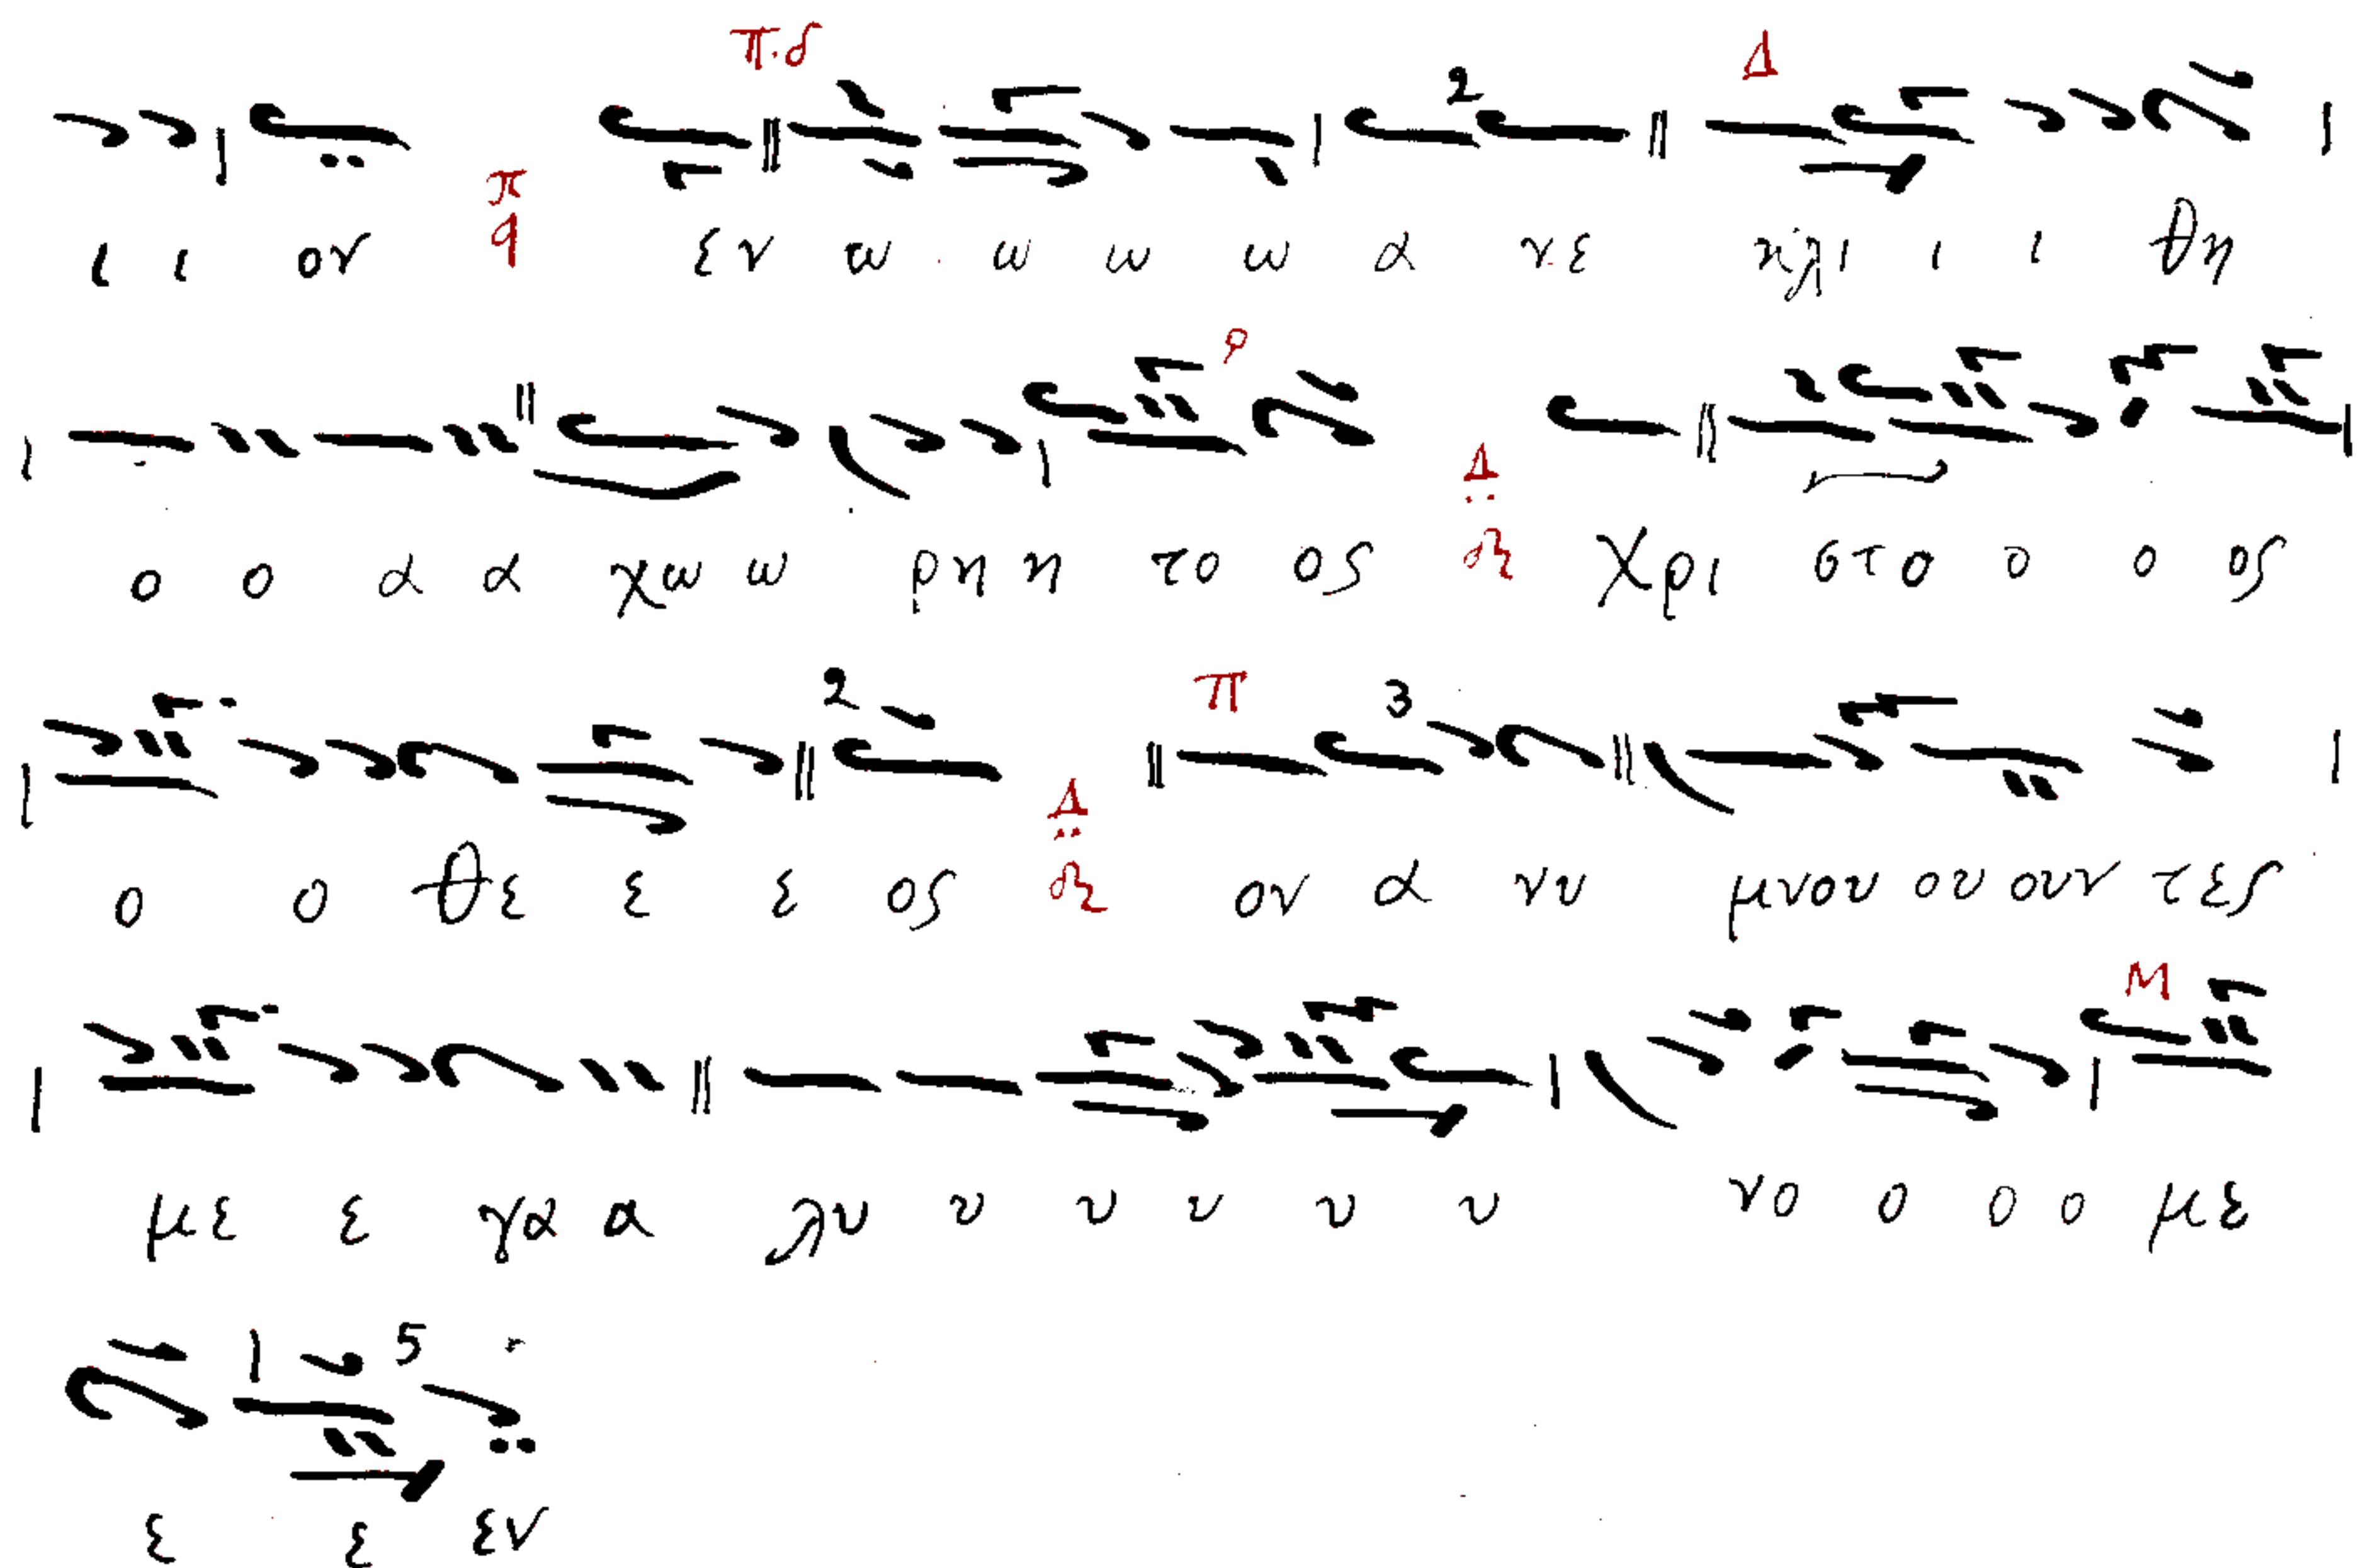 π.δ Δ
ι ι ον π q εν ω ω ω ω α νε κλι ι ι θη
ο ο α α χω ω ρη η το ος Δ Χρι στο ο ο ος
2 π 3
ο ο θε ε ε ος Δ ον α νυ μνου ου ουν τες
Μ
με ε γα α λυ υ υ υ υ υ νο ο ο ο με
5
ε ε εν